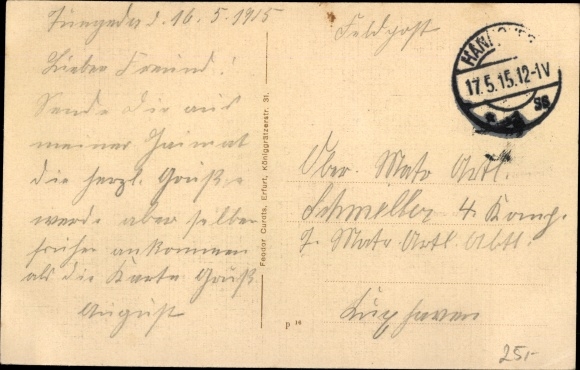 Tüngeda d. 16.5.1915
Lieber Freund!
Sende Dir aus
meiner Heimat
die herzl. Grüße
werde aber selber
früher ankommen
als die Karte Gruß
August
Feodor Cursta, Erfurt, Königgrätzerstr. 31.
Feldpost
17.5.15.12-1V
Ober. Matr Artl.
4. Komp.
Matr. Artl. Abtl.
Kuxhaven
P 14
25,-